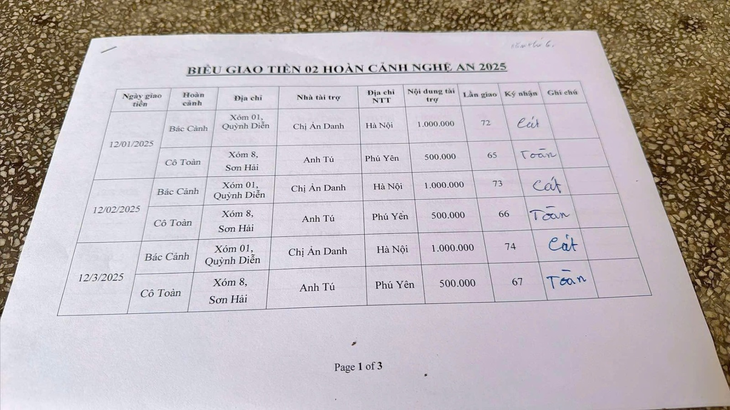 BIỂU GIAO TIỀN 02 HOÀN CẢNH NGHỆ AN 2025
Ngày giao tiền Hoàn cảnh Địa chỉ Nhà tài trợ Địa chỉ NTT Nội dung tài trợ Lần giao Ký nhận Ghi chú
12/01/2025 Bác Cảnh Xóm 01, Quỳnh Diễn Chị Ẩn Danh Hà Nội 1.000.000 72 Cát
Cô Toàn Xóm 8, Sơn Hải Anh Tú Phú Yên 500.000 65 Toàn
12/02/2025 Bác Cảnh Xóm 01, Quỳnh Diễn Chị Ẩn Danh Hà Nội 1.000.000 73 Cát
Cô Toàn Xóm 8, Sơn Hải Anh Tú Phú Yên 500.000 66 Toàn
12/3/2025 Bác Cảnh Xóm 01, Quỳnh Diễn Chị Ẩn Danh Hà Nội 1.000.000 74 Cát
Cô Toàn Xóm 8, Sơn Hải Anh Tú Phú Yên 500.000 67 Toàn
Page 1 of 3